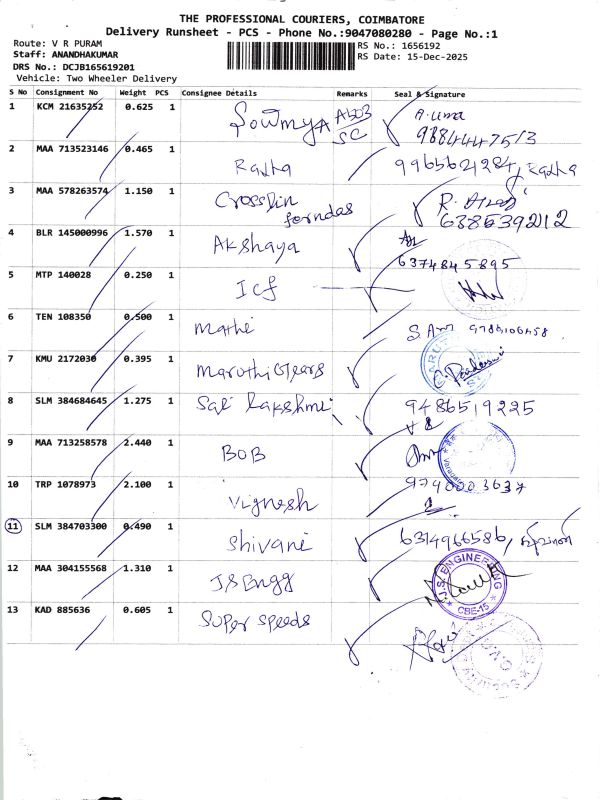 THE PROFESSIONAL COURIERS, COIMBATORE
Delivery Runsheet - PCS - Phone No.:9047080280 - Page No.:1
Route: V R PURAM
RS No.: 1656192
Staff: ANANDHAKUMAR
RS Date: 15-Dec-2025
DRS No.: DCJB165619201
Vehicle: Two Wheeler Delivery
S No Consignment No Weight PCS Consignee Details Remarks Seal & Signature
1 KCM 21635252 0.625 1 Sowmya A503/SC A.uma
9884447513
2 MAA 713523146 0.465 1 Radha 9965621284, Radha
3 MAA 578263574 1.150 1 Crosslin ferndas
6385392212
4 BLR 145000996 1.570 1 Akshaya
6374845895
5 MTP 140028 0.250 1 Icf
6 TEN 108350 0.500 1 Mathi
7 KMU 2172030 0.395 1 Maruthi Gears
8 SLM 384684645 1.275 1 Sai Lakshmi 9486519225
9 MAA 713258578 2.440 1 BOB
10 TRP 1078973 2.100 1 Vignesh 9790003637
11 SLM 384703300 0.490 1 Shivani 6314966586,
12 MAA 304155568 1.310 1 JS Engg J.S. ENGINEERING CBE-15
13 KAD 885636 0.605 1 Super speeds